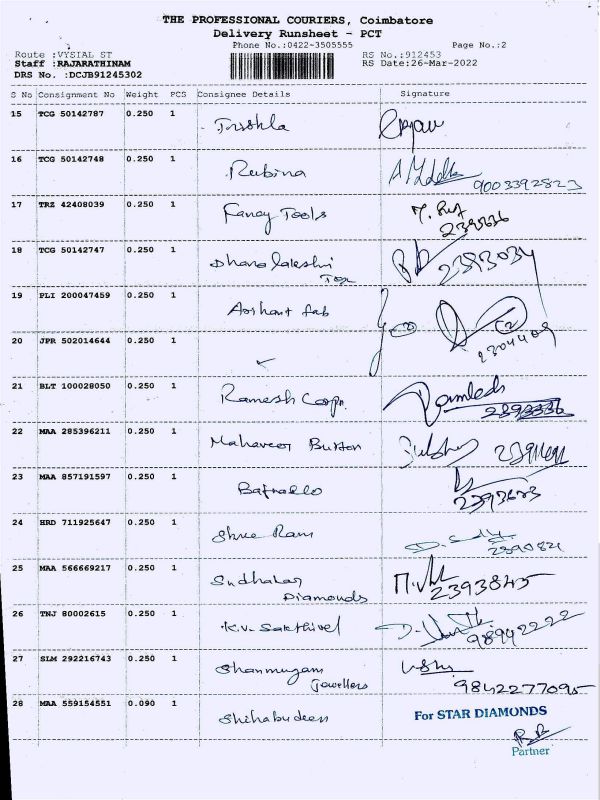 THE PROFESSIONAL COURIERS, Coimbatore
Delivery Runsheet - PCT
Phone No.:0422-3505555 Page No.:2
Route :VYSIAL ST RS No.:912453
Staff :RAJARATHINAM RS Date:26-Mar-2022
DRS No. :DCJB91245302
S No Consignment No Weight PCS Consignee Details Signature
15 TCG 50142787 0.250 1 Trishla
16 TCG 50142748 0.250 1 Rubina 9003392823
17 TRZ 42408039 0.250 1 Fancy Tools
18 TCG 50142747 0.250 1 Dhanalakshmi Tex 2393034
19 PLI 200047459 0.250 1 Arihant fab
20 JPR 502014644 0.250 1 2304409
21 BLT 100028050 0.250 1 Ramesh Corpn.
22 MAA 285396211 0.250 1 Mahaveer Button
23 MAA 857191597 0.250 1
24 HRD 711925647 0.250 1 Shree Ram 2390821
25 MAA 566669217 0.250 1 Sudhakar Diamonds 2393845
26 TNJ 80002615 0.250 1 K.V. Sakthivel 989422222
27 SLM 292216743 0.250 1 Shanmugam Jewellers 9842277095
28 MAA 559154551 0.090 1 Shihabudeen For STAR DIAMONDS
Partner